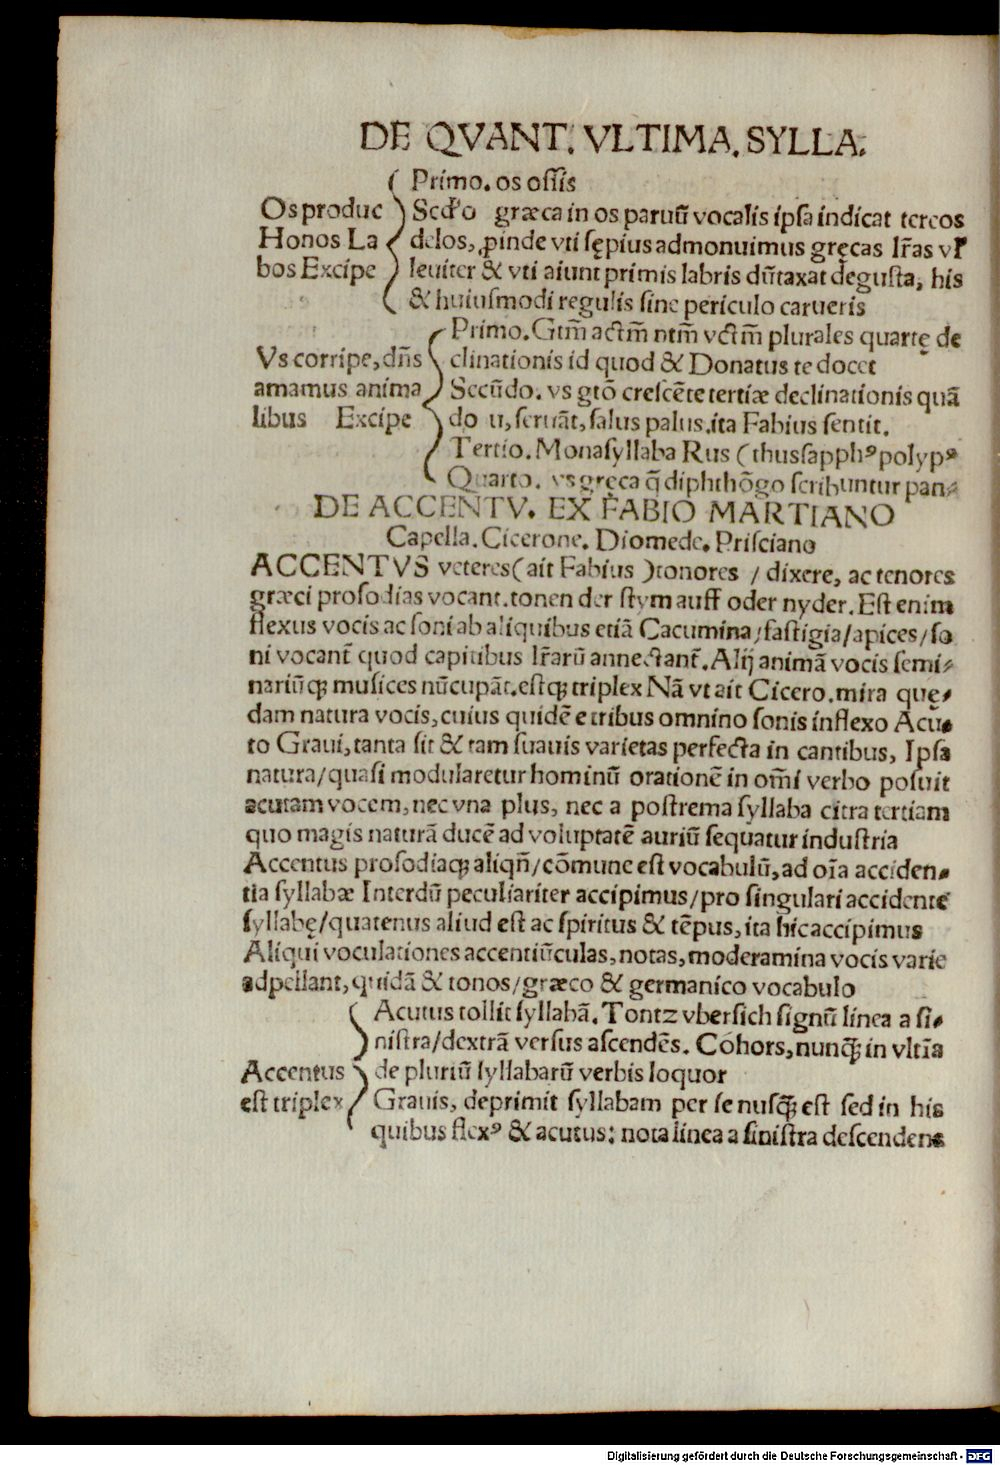 DE QVANT. VLTIMA. SYLLA.
Os produc
Honos La
bos Excipe
Primo. os ossis
Scdo græca in os paruū vocalis ipsa indicat tereos
delos, ꝓinde vti sępius admonuimus gręcas lr̄as vl
leuiter & vti aiunt primis labris dūtaxat degusta, his
& huiusmodi regulis sine periculo carueris
Vs corripe, dn̄s
amamus anima
libus Excipe
Primo. Gtm̄ actm̄ ntm̄ vctm̄ plurales quartę de
clinationis id quod & Donatus te docet
Secūdo. vs gtō crescēte tertiæ declinationis quā
do u, seruāt, salus palus. ita Fabius sentit.
Tertio. Monasyllaba Rus (thus sapphꝰ polypꝰ
Quarto. vs gręca q̄ diphthōgo scribuntur pan-
DE ACCENTV. EX FABIO MARTIANO
Capella. Cicerone. Diomede. Prisciano
ACCENTVS veteres (ait Fabius) tonores / dixere, ac tenores
græci prosodias vocant. tonen der stym auff oder nyder. Est enim
flexus vocis ac soni ab aliquibus etiā Cacumina/fastigia/apices/so
ni vocant̄ quod capitibus lr̄arū annectant̄. Alij animā vocis semi-
nariūqꝫ musices nūcupāt. estqꝫ triplex Nā vt ait Cicero. mira quę-
dam natura vocis, cuius quidē e tribus omnino sonis inflexo Acu-
to Graui, tanta sit & tam suauis varietas perfecta in cantibus, Ipsa
natura/quasi modularetur hominū orationē in om̄i verbo posuit
acutam vocem, nec vna plus, nec a postrema syllaba citra tertiam
quo magis naturā ducē ad voluptatē auriū sequatur industria
Accentus prosodiaqꝫ aliqn̄/cōmune est vocabulū, ad oīa acciden-
tia syllabæ Interdū peculiariter accipimus/pro singulari accidente
syllabę/quatenus aliud est ac spiritus & tēpus, ita hic accipimus
Aliqui voculationes accentiūculas, notas, moderamina vocis varie
adpellant, quidā & tonos/græco & germanico vocabulo
Accentus
est triplex
Acutus tollit syllabā. Tontz vbersich signū linea a si-
nistra/dextrā versus ascendēs. Cóhors, nunqꝫ̄ in vltīa
de pluriū syllabarū verbis loquor
Grauis, deprimit syllabam per se nusqꝫ̄ est sed in his
quibus flexꝰ & acutus: nota linea a sinistra descendens
Digitalisierung gefördert durch die Deutsche Forschungsgemeinschaft - DFG